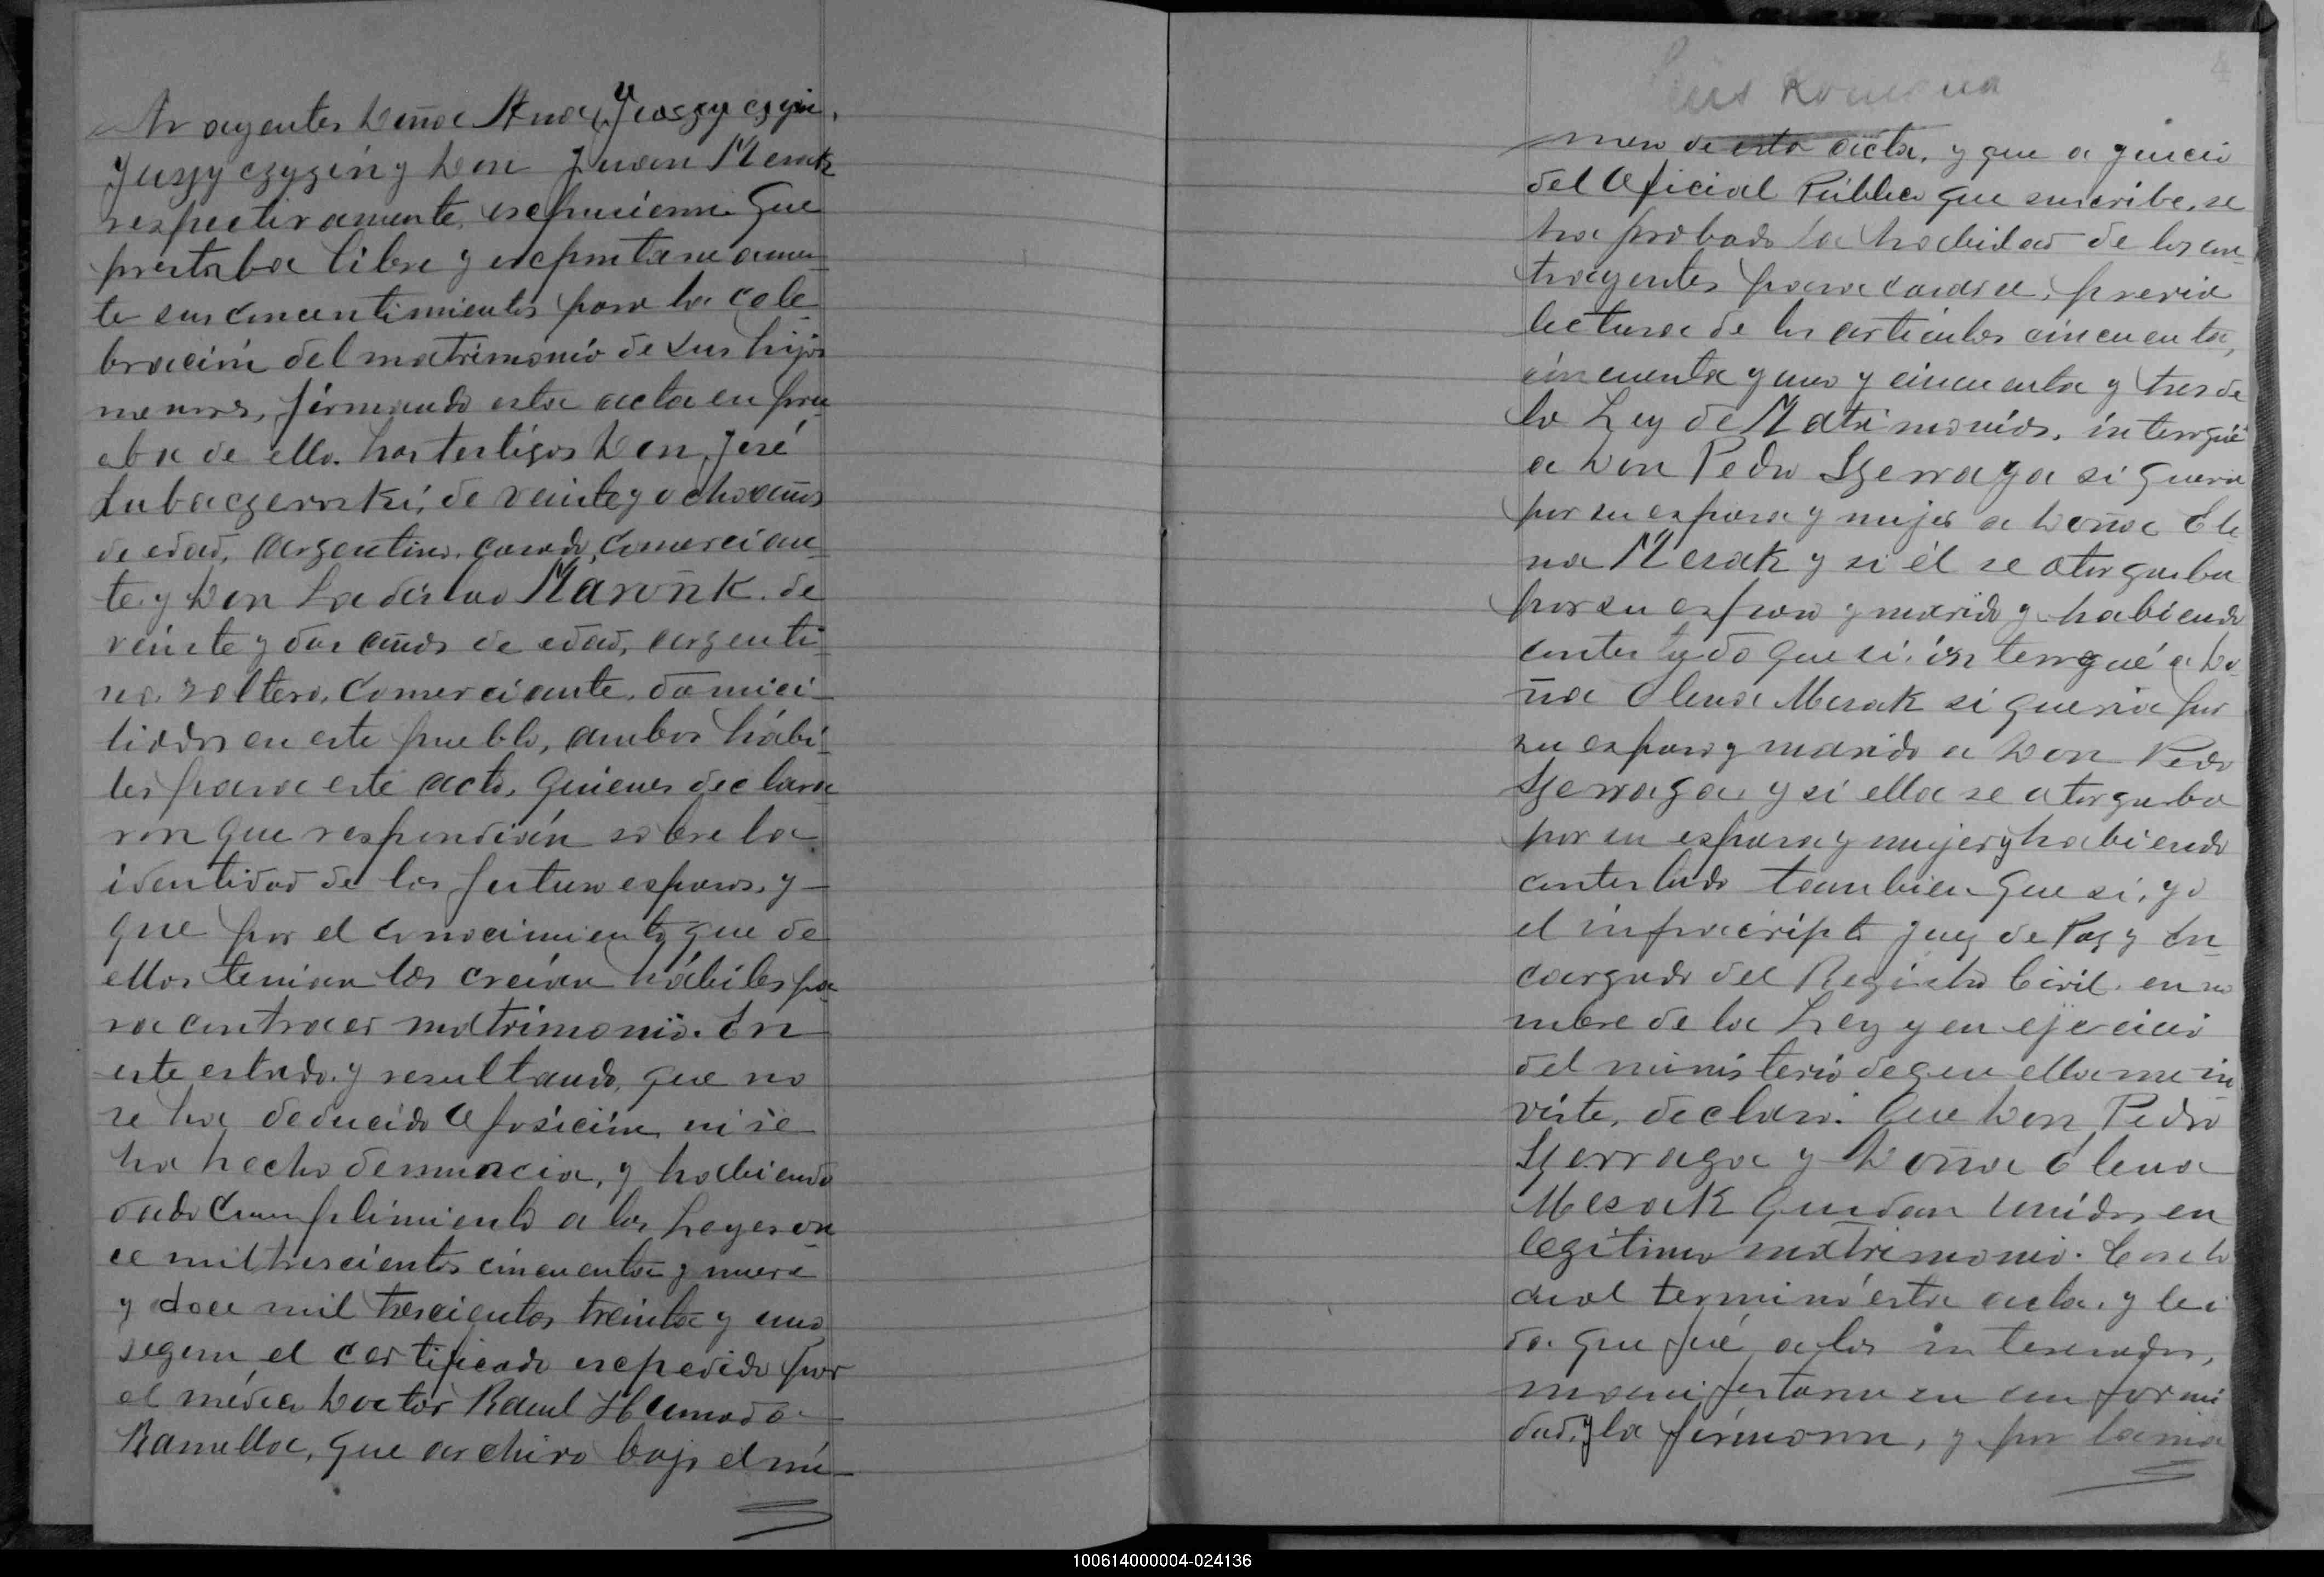 trayentes Doña Ana
Juszyczyzin y Don Juan Mesak
respectivamente, expusieron: Que
prestaba libre y expontaneamen-
te sus consentimientos para la cele-
bración del matrimonio de sus hijos
menores, firmando esta acta en pru-
eba de ello. Los testigos Don José
Lubaczewski, de veinte y ocho años
de edad, argentino, casado, comercian-
te y Don Ladislao Maroñk. de
veinte y dos años de edad, argenti-
no, soltero, comerciante, domici-
liados en este pueblo, ambos hábi-
les para este acto, quienes declara
ron que respondían sobre la
identidad de los futuro esposos, y
que por el conocimiento que de
ellos tenian los creían hábiles pa-
ra contraer matrimonio. En
este estado y resultando, que no
se ha deducido oposición ni se
ha hecho denuncia, y habiendo
dado cumplimiento a las Leyes on-
ce mil trescientos cincuenta y nueve
y doce mil trescientos treinta y uno,
segun el certificado expedido por
el médico Doctor Raul
Ramella, que archivo bajo el nú-
mero de esta acta, y que a juicio
del Oficial Público que suscribe, se
ha probado la habilidad de los con-
trayentes para casarse, previa
lectura de los articulos cincuenta,
cincuenta y uno y cincuenta y tres de
la Ley de Matrimonios, interrogué
a Don Pedro Szewaga si queria
por su esposa y mujer a Doña Ele-
na Mesak y si él se otorgaba
por su esposo y marido y habiendo
contestado que si, interrogué a Do-
ña Elena Mesak si queria por
su esposo y marido a Don Pedro
Szewaga y si ella se otorgaba
por su esposa y mujer y habiendo
contestado tambien que si, yo
el infrascripto Juez de Paz y En-
cargado del Registro Civil, en no
mbre de la Ley y en ejercicio
del ministerio de que ella me in-
viste, declaro: Que Don Pedro
Szewaga y Doña Elena
Mesak quedan unidos en
legítimo matrimonio. Con lo
cual terminó esta acta, y lei
da que fué a los interesados,
manifestaron su conformi
dad, y la firmaron, y por